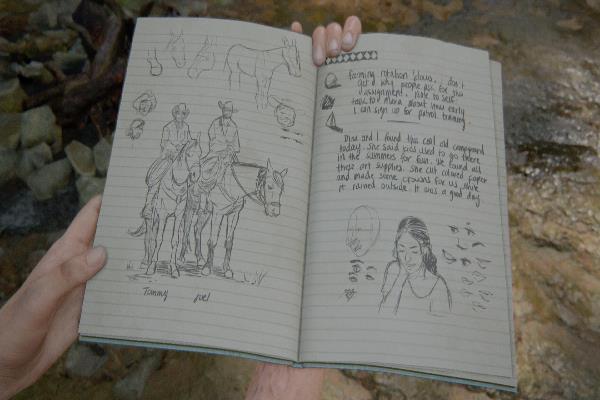 Tommy Joel
Farming rotation blows. I don't
get why people ask for this
assignment. Note to self:
talk to Maria about how early
I can sign up for patrol training.
Dina and I found this cool old campground
today. She said kids used to go there
in the summers for fun. We found all
these art supplies. She cut colored paper
and made some crowns for us while
it rained outside. It was a good day